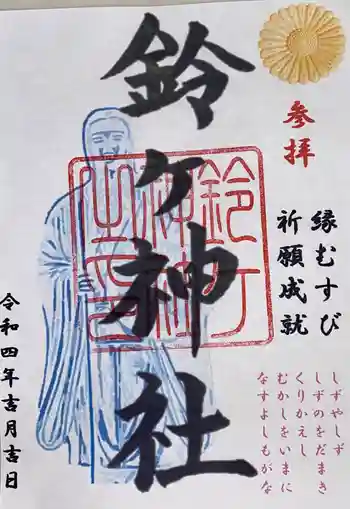 参拝
縁むすび
祈願成就
しずやしず
しずのをだまき
くりかえし
むかしをいまに
なすよしもがな
鈴ケ神社
鈴ケ
神社
之印
令和四年吉月吉日